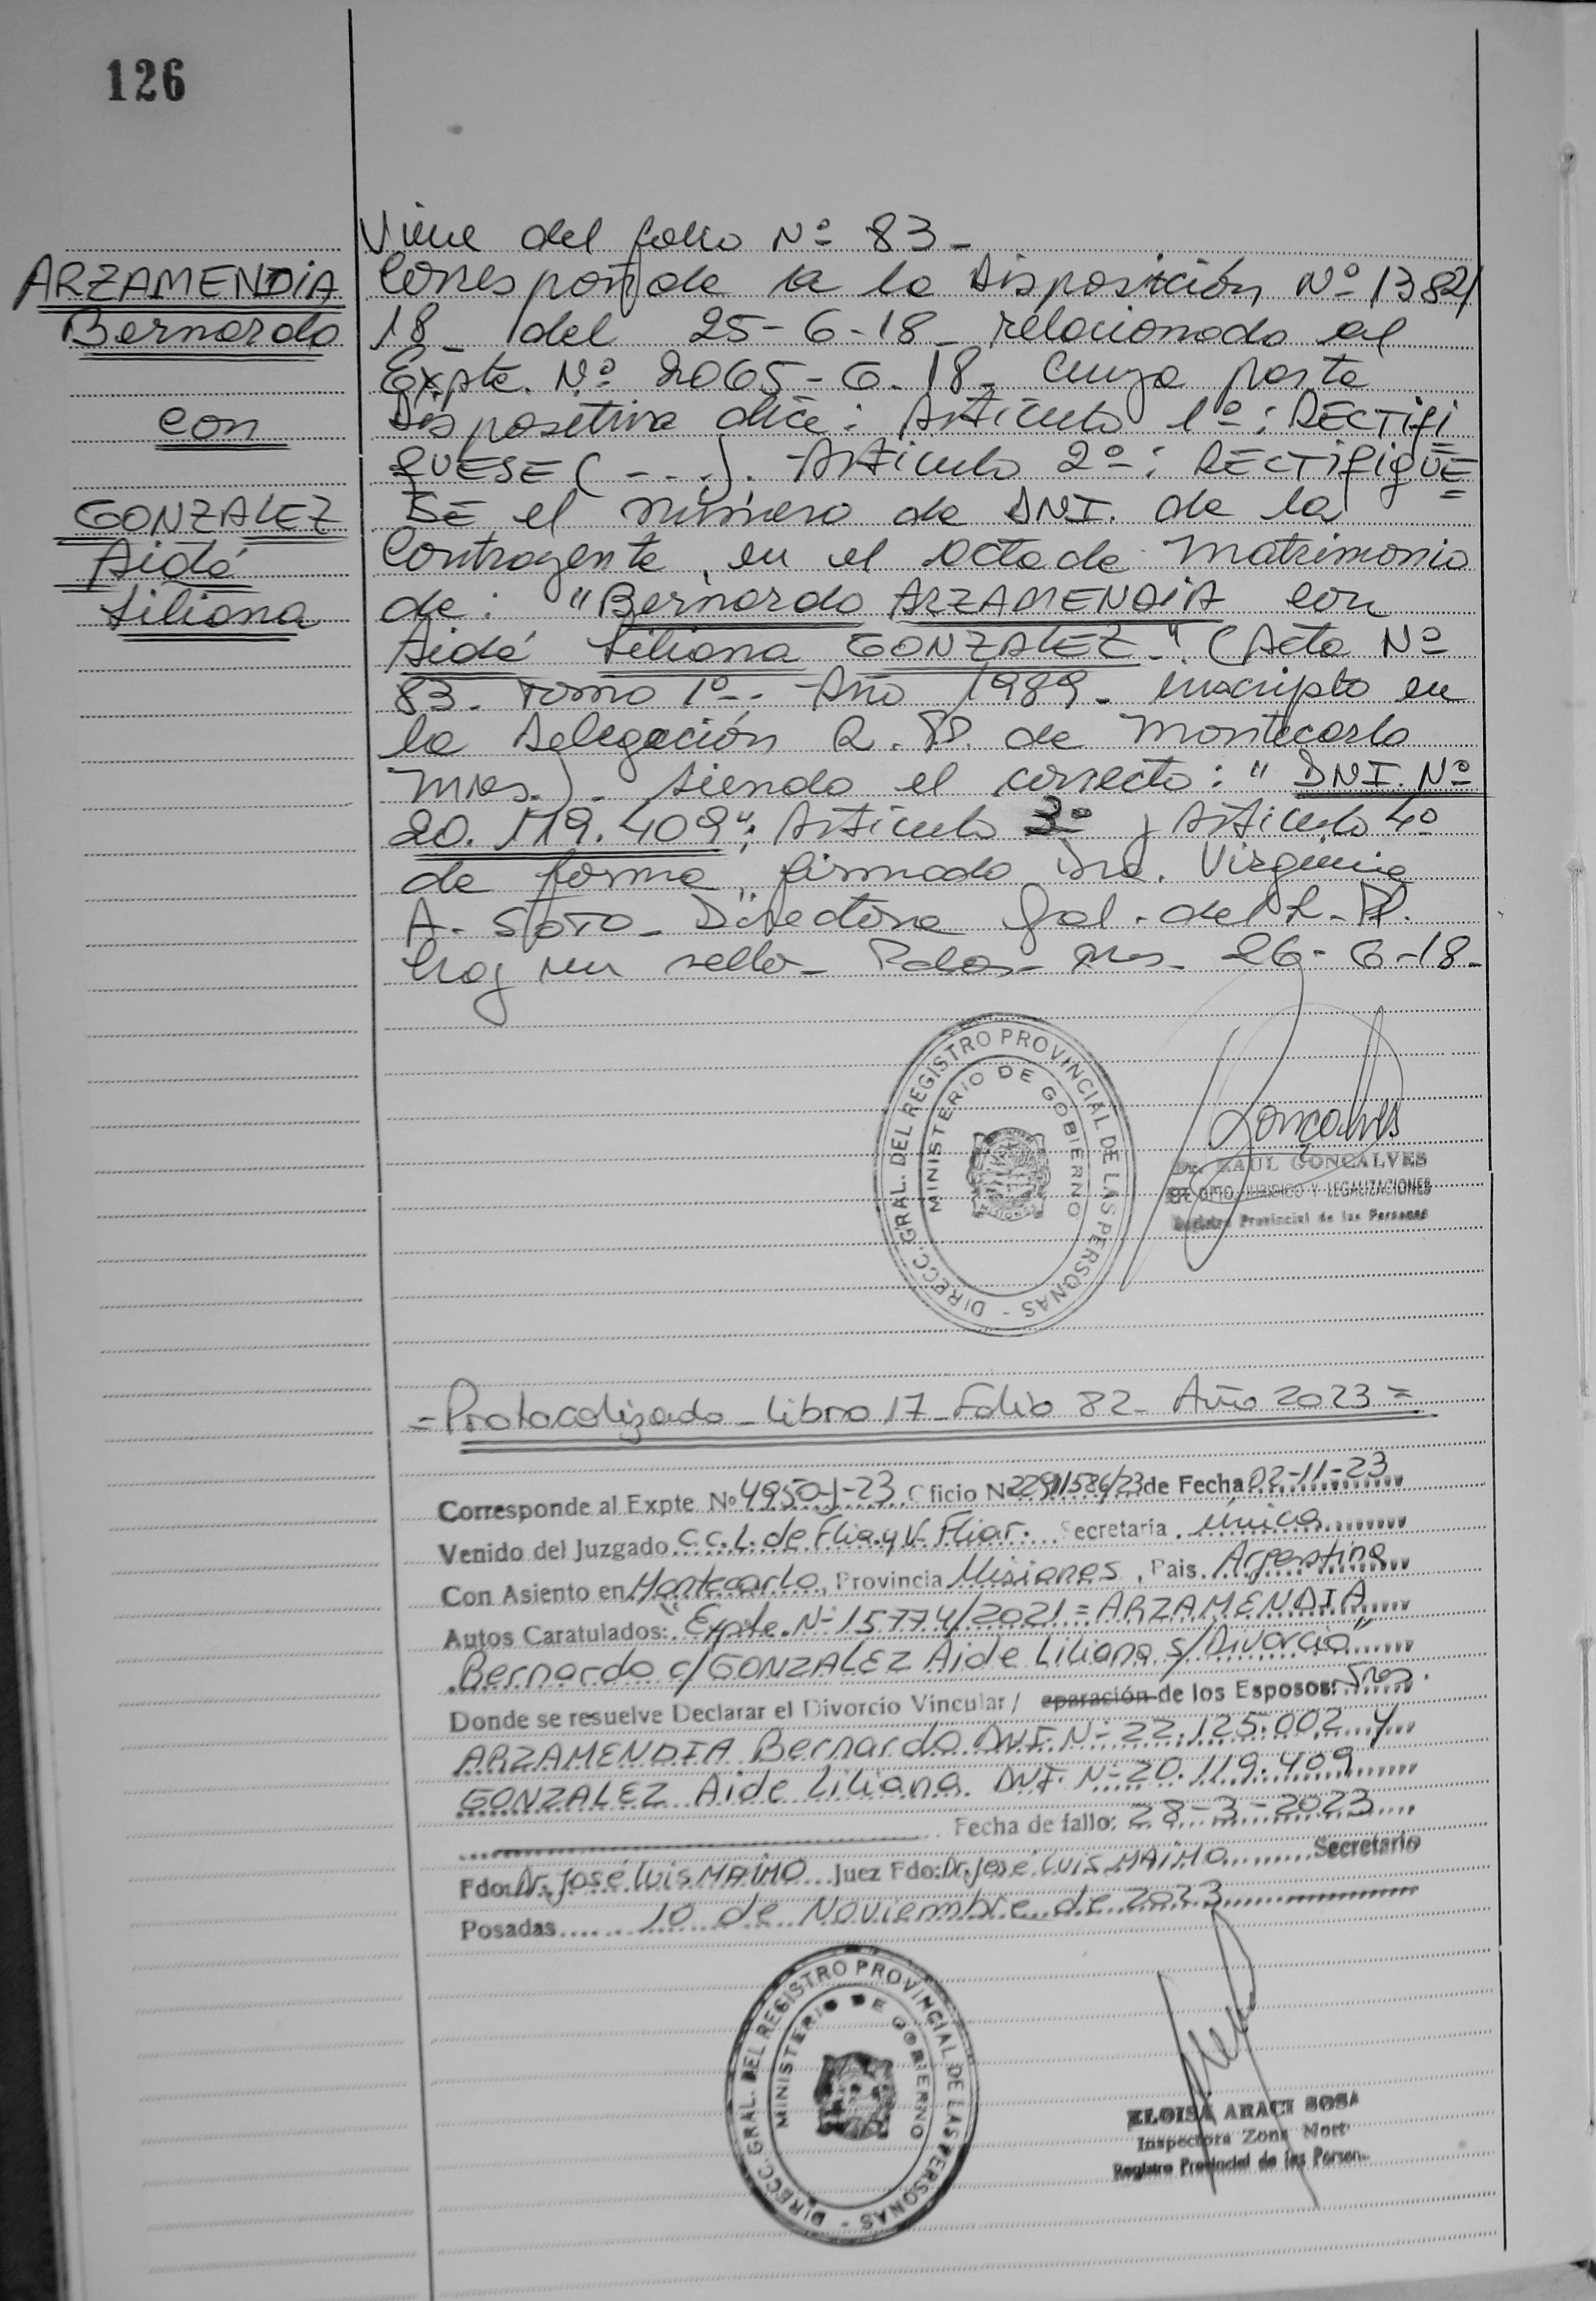 126
ARZAMENDIA
Bernardo
con
GONZALEZ
Aidé
Liliana
Viene del folio Nº 83-
Corresponde a la Disposición Nº 1382/
18- del 25-6-18- relacionado al
Expte. Nº 2065-G-18- cuya parte
Dispositiva dice: Artículo 1º: RECTIFI
QUESE (---). Artículo 2º: RECTIFIQUE
SE el número de DNI. de la
Contrayente, en el Acta de Matrimonio
de: "Bernardo ARZAMENDIA con
Aidé Liliana GONZALEZ-" (Acta Nº
83- Tomo 1º- Año 1989- inscripto en
la Delegación R.P. de Montecarlo
Mnes.)- siendo el correcto: "DNI. Nº
20.119.409"; Artículo 3º y Artículo 4º
de forma, firmado Dra. Virginia
A. Soto- Directora Gral. del R.P.
hay un sello- Pdas- Mnes- 26-6-18-
DIRECC. GRAL. DEL REGISTRO PROVINCIAL DE LAS PERSONAS -
MINISTERIO DE GOBIERNO
Goncalves
Dr. RAUL GONCALVES
DPTO. JURIDICO Y LEGALIZACIONES
Registro Provincial de las Personas
=Protocolizado-Libro 17-Folio 82- Año 2023=
Corresponde al Expte. Nº 4950-J-23 Oficio Nº 22911586/23 de Fecha 02-11-23
Venido del Juzgado C.C.L. de Flia. y V. Fliar. Secretaria única
Con Asiento en Montecarlo, Provincia Misiones, Pais. Argentina
Autos Caratulados: "Expte. Nº 15774/2021=ARZAMENDIA
Bernardo c/ GONZALEZ Aide Liliana s/Divorcio"
Donde se resuelve Declarar el Divorcio Vincular / eparación de los Esposos: Sres.
ARZAMENDIA Bernardo DNI. Nº 22.125.002 y
GONZALEZ Aide Liliana. DNI. Nº 20.119.409
Fecha de fallo: 28-3-2023
Fdo: Dr. José Luis MAIMO Juez Fdo: Dr. José Luis MAIMO Secretario
Posadas 10 de Noviembre de 2023
DIRECC. GRAL. DEL REGISTRO PROVINCIAL DE LAS PERSONAS -
MINISTERIO DE GOBIERNO
ELOISA ARACI SOSA
Inspectora Zona Nort
Registro Provincial de las Person